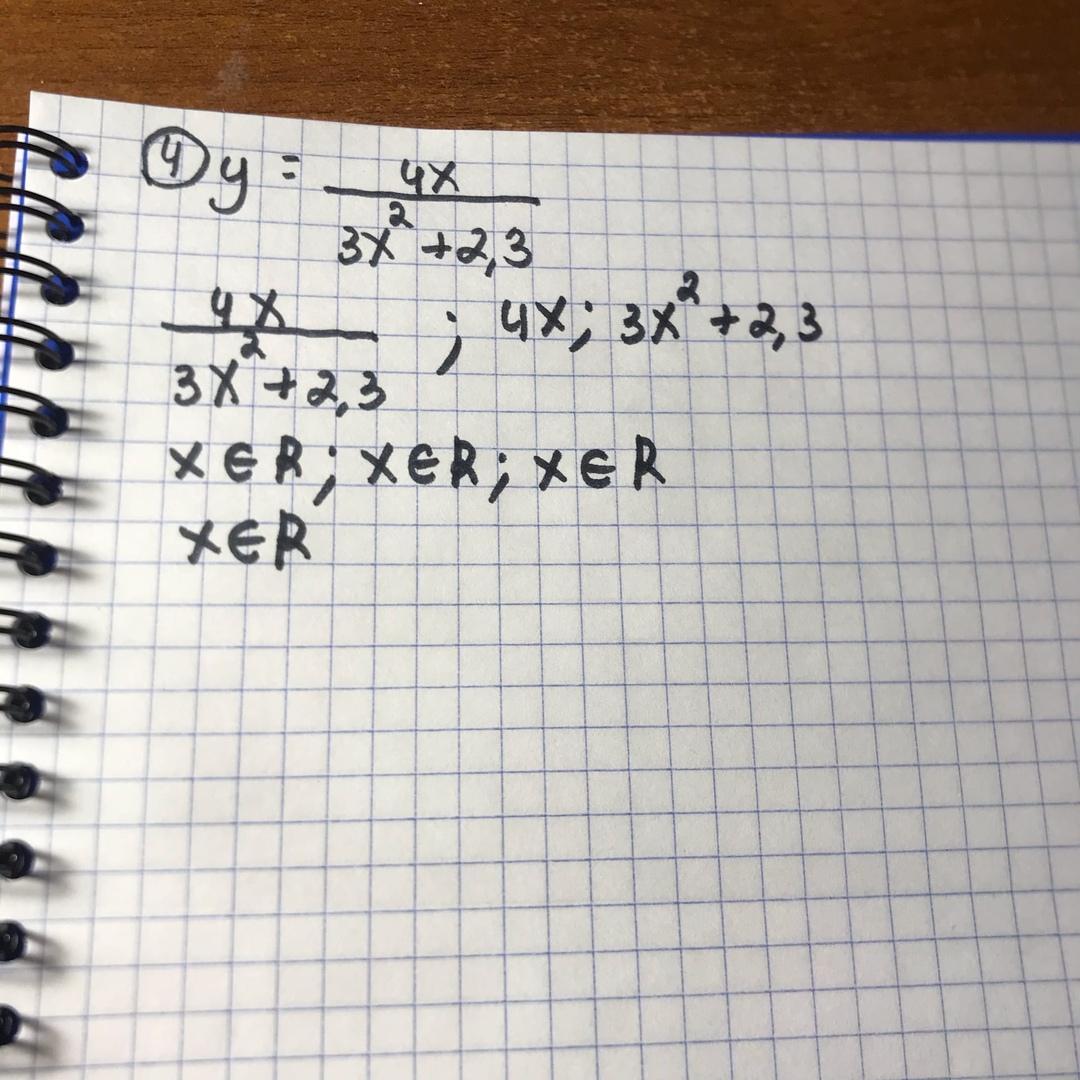 ④ y = 4x / (3x² + 2,3)
4x / (3x² + 2,3) ; 4x; 3x² + 2,3
x ∈ R; x ∈ R; x ∈ R
x ∈ R